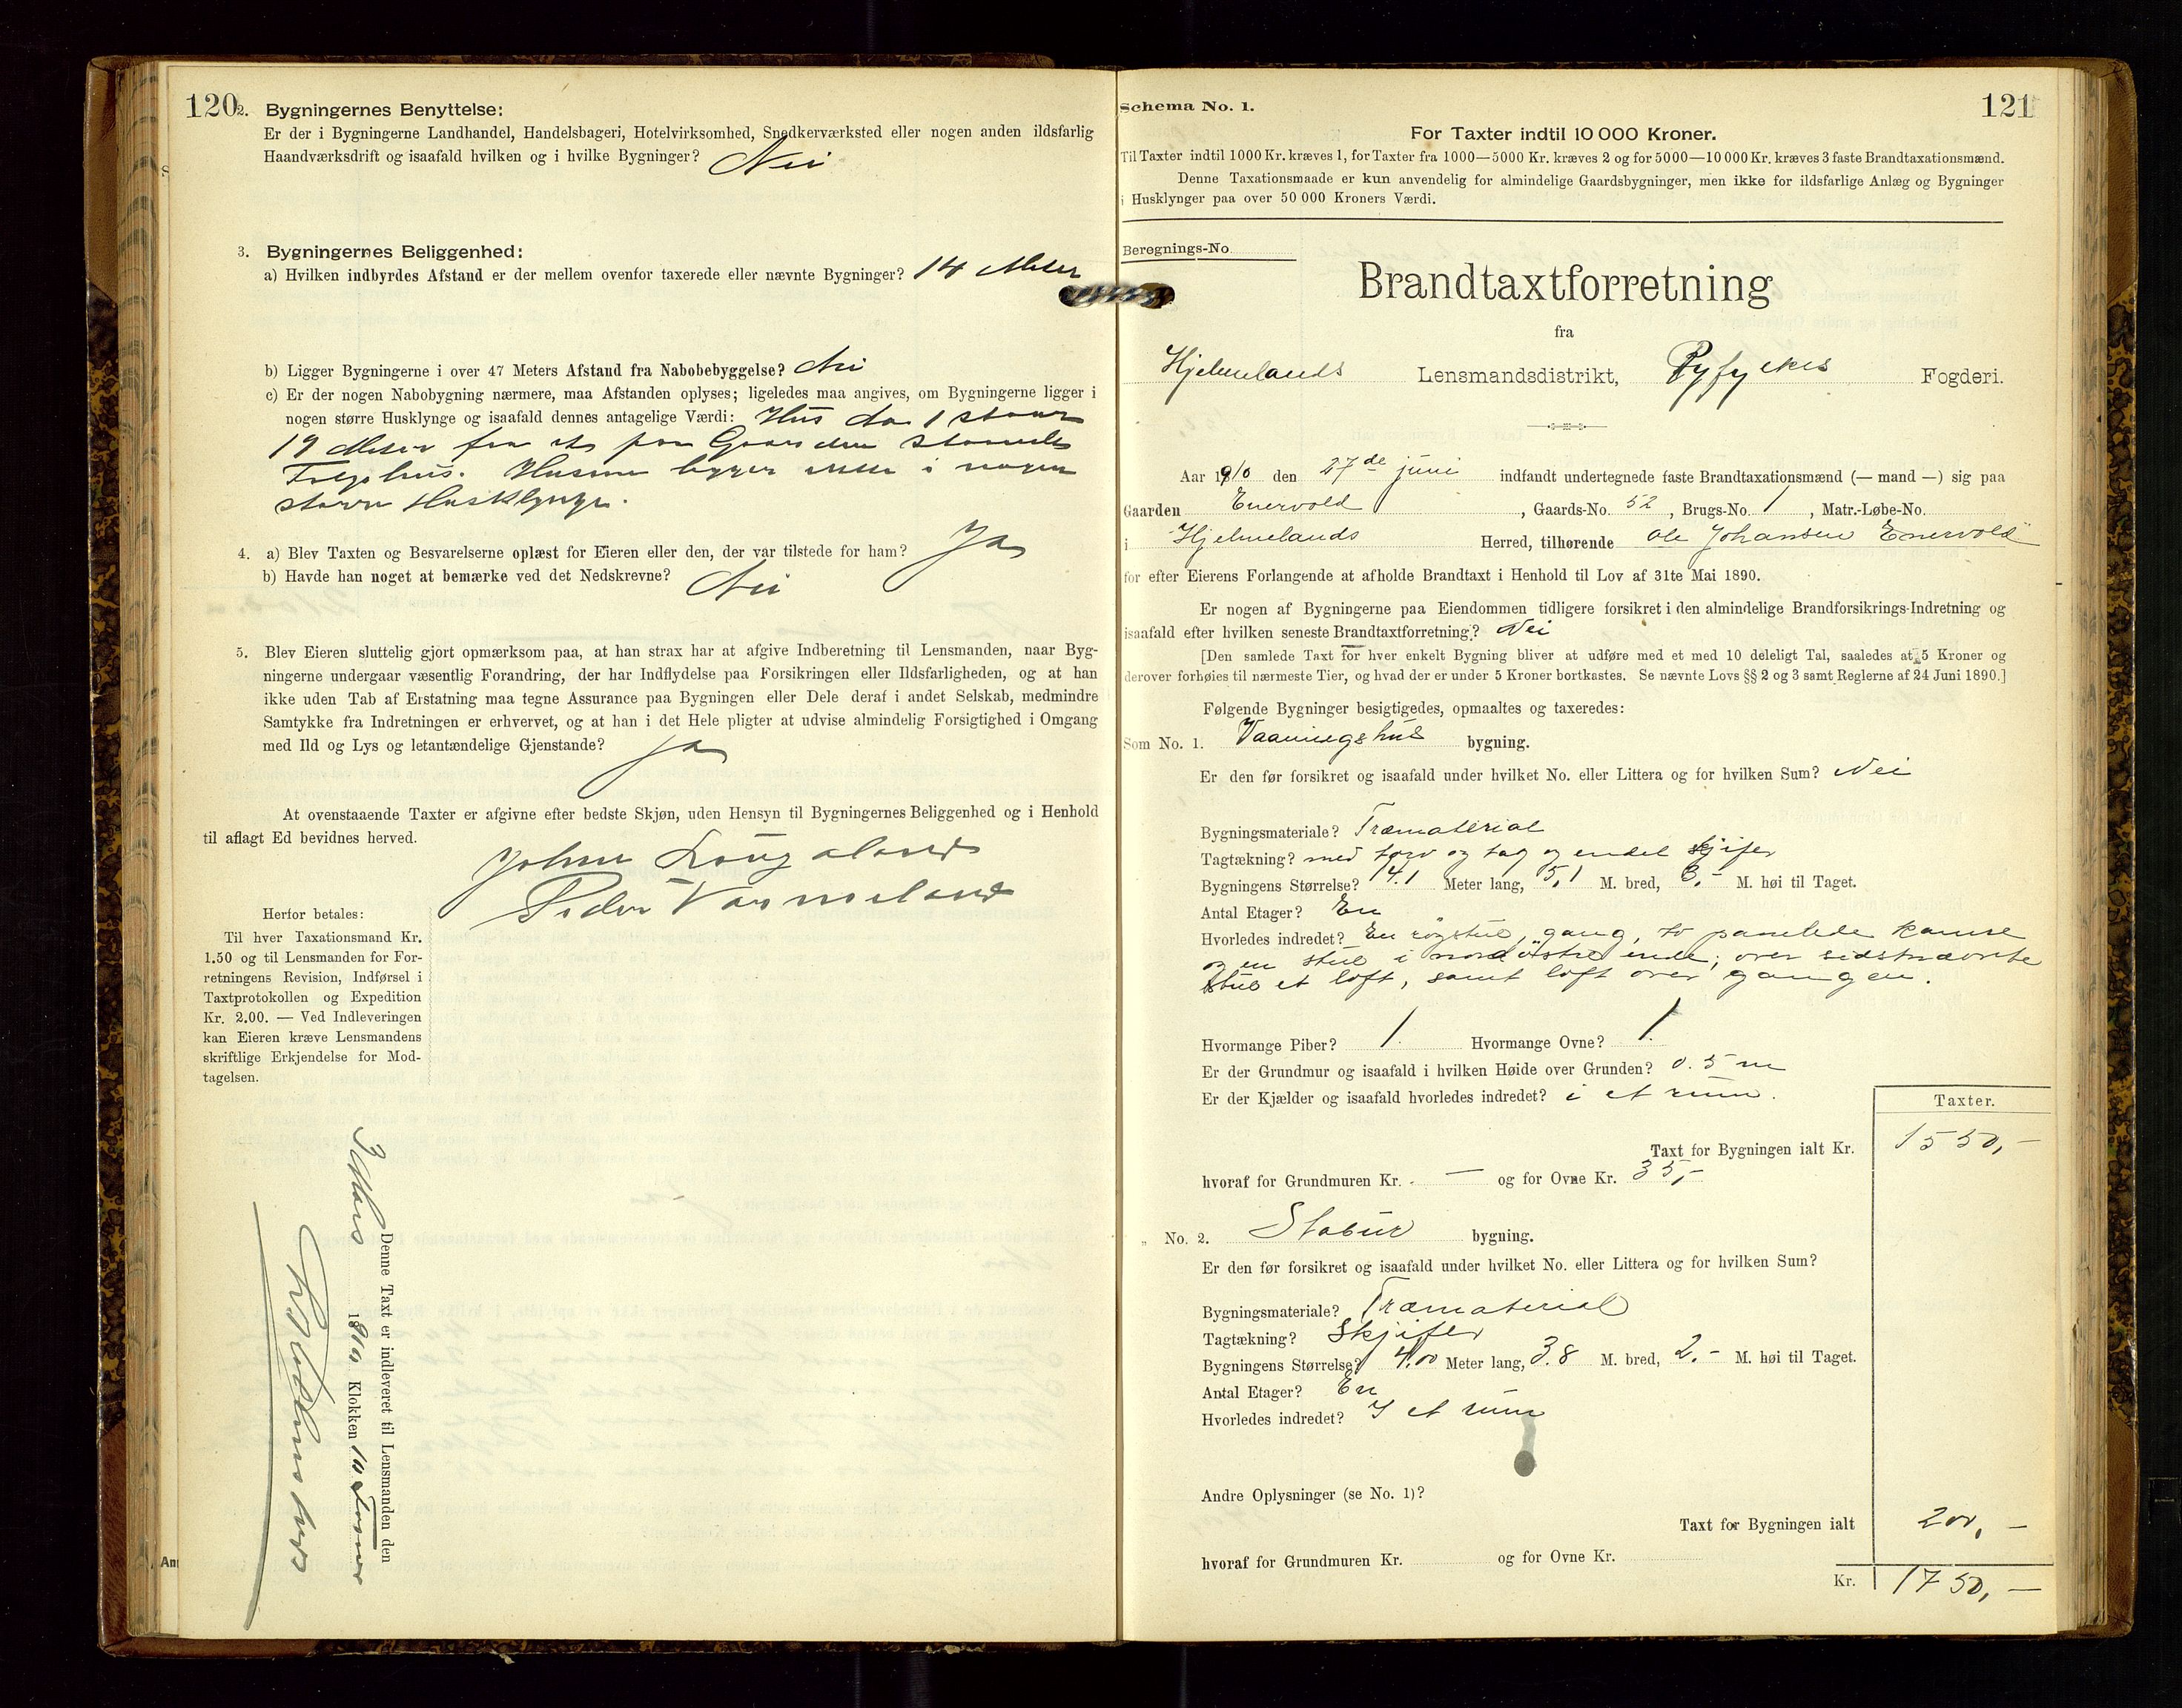 120
2. Bygningernes Benyttelse:
Er der i Bygningerne Landhandel, Handelsbageri, Hotelvirksomhed, Snedkerværksted eller nogen anden ildsfarlig
Haandværksdrift og isaafald hvilken og i hvilke Bygninger? Nei
3. Bygningernes Beliggenhed:
a) Hvilken indbyrdes Afstand er der mellem ovenfor taxerede eller nævnte Bygninger? 14 Meter
b) Ligger Bygningerne i over 47 Meters Afstand fra Nabobebyggelse? Nei
c) Er der nogen Nabobygning nærmere, maa Afstanden oplyses; ligeledes maa angives, om Bygningerne ligger i
nogen større Husklynge og isaafald dennes antagelige Værdi: Hus No 1 staar
19 Meter fra et paa Gaarden staaende
Føgshus. Husene ligger ikke i nogen
større Husklynge.
4. a) Blev Taxten og Besvarelserne oplæst for Eieren eller den, der var tilstede for ham? Ja
b) Havde han noget at bemærke ved det Nedskrevne? Nei
5. Blev Eieren sluttelig gjort opmærksom paa, at han strax har at afgive Indberetning til Lensmanden, naar Byg-
ningerne undergaar væsentlig Forandring, der har Indflydelse paa Forsikringen eller Ildsfarligheden, og at han
ikke uden Tab af Erstatning maa tegne Assurance paa Bygningen eller Dele deraf i andet Selskab, medmindre
Samtykke fra Indretningen er erhvervet, og at han i det Hele pligter at udvise almindelig Forsigtighed i Omgang
med Ild og Lys og letantændelige Gjenstande? Ja
At ovenstaaende Taxter er afgivne efter bedste Skjøn, uden Hensyn til Bygningernes Beliggenhed og i Henhold
til aflagt Ed bevidnes herved.
Peder Vormeland
Herfor betales:
Til hver Taxationsmand Kr.
1.50 og til Lensmanden for For-
retningens Revision, Indførsel i
Taxtprotokollen og Expedition
Kr. 2.00. — Ved Indleveringen
kan Eieren kræve Lensmandens
skriftlige Erkjendelse for Mod-
tagelsen.
Denne Taxt er indleveret til Lensmanden den
Klokken 10
Schema No. 1.
121
For Taxter indtil 10 000 Kroner.
Til Taxter indtil 1000 Kr. kræves 1, for Taxter fra 1000—5000 Kr. kræves 2 og for 5000—10 000 Kr. kræves 3 faste Brandtaxationsmænd.
Denne Taxationsmaade er kun anvendelig for almindelige Gaardsbygninger, men ikke for ildsfarlige Anlæg og Bygninger
i Husklynger paa over 50 000 Kroners Værdi.
Beregnings-No
Brandtaxtforretning
fra
Hjelmelands Lensmandsdistrikt, Ryfylkes Fogderi.
Aar 1910 den 27de juni indfandt undertegnede faste Brandtaxationsmænd (— mand —) sig paa
Gaarden Enervold, Gaards-No. 52, Brugs-No. 1, Matr.-Løbe-No.
i Hjelmelands Herred, tilhørende Ole Johansen Enervold
for efter Eierens Forlangende at afholde Brandtaxt i Henhold til Lov af 31te Mai 1890.
Er nogen af Bygningerne paa Eiendommen tidligere forsikret i den almindelige Brandforsikrings-Indretning og
isaafald efter hvilken seneste Brandtaxtforretning? Nei
[Den samlede Taxt for hver enkelt Bygning bliver at udføre med et med 10 deleligt Tal, saaledes at 5 Kroner og
derover forhøies til nærmeste Tier, og hvad der er under 5 Kroner bortkastes. Se nævnte Lovs §§ 2 og 3 samt Reglerne af 24 Juni 1890.]
Følgende Bygninger besigtigedes, opmaaltes og taxeredes:
Som No. 1. Vaaningshus bygning.
Er den før forsikret og isaafald under hvilket No. eller Littera og for hvilken Sum? Nei
Bygningsmateriale? Træmaterial
Tagtækning? med torv og tag og endel skjifer
Bygningens Størrelse? 14.1 Meter lang, 5,1 M. bred, 3,- M. høi til Taget.
Antal Etager? En
Hvorledes indredet? En røgstue, gang, to panelede kamre
og en stue i nordøstre ende; over sidstnævnte
stue et loft, samt loft over gangen.
Hvormange Piber? 1. Hvormange Ovne? 1.
Er der Grundmur og isaafald i hvilken Høide over Grunden? 0.5 m
Er der Kjælder og isaafald hvorledes indredet? i et rum.
Taxter.
Taxt for Bygningen ialt Kr. 1550,-
hvoraf for Grundmuren Kr. — og for Ovne Kr. 35,-
„ No. 2. Stabur bygning.
Er den før forsikret og isaafald under hvilket No. eller Littera og for hvilken Sum?
Bygningsmateriale? Træmaterial
Tagtækning? Skjifer
Bygningens Størrelse? 4.00 Meter lang, 3.8 M. bred, 2.- M. høi til Taget.
Antal Etager? En
Hvorledes indredet? I et rum
Andre Oplysninger (se No. 1)?
Taxt for Bygningen ialt 200,-
hvoraf for Grundmuren Kr. og for Ovne Kr.
Kr. 1750,-